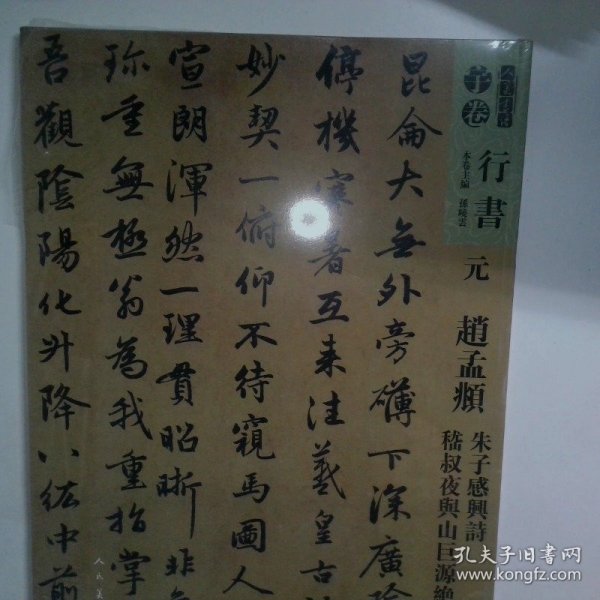 昆侖大無外旁礴下深廣陰
停機寒暑互來往羲皇古
妙契一俯仰不待窺馬圖人
宣朗渾然一理貫昭晰非
珎重無極翁為我重指掌
吾觀陰陽化升降八紘中前
卷
行書
本卷主編 孫曉雲
元 趙孟頫
朱子感興詩
嵇叔夜與山巨源絶
人民美
孔夫子旧书网
www.kongfz.com